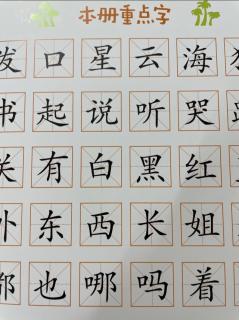 本册重点字
口星云海
书起说听哭
关有白黑红
外东西长姐
都也哪吗着